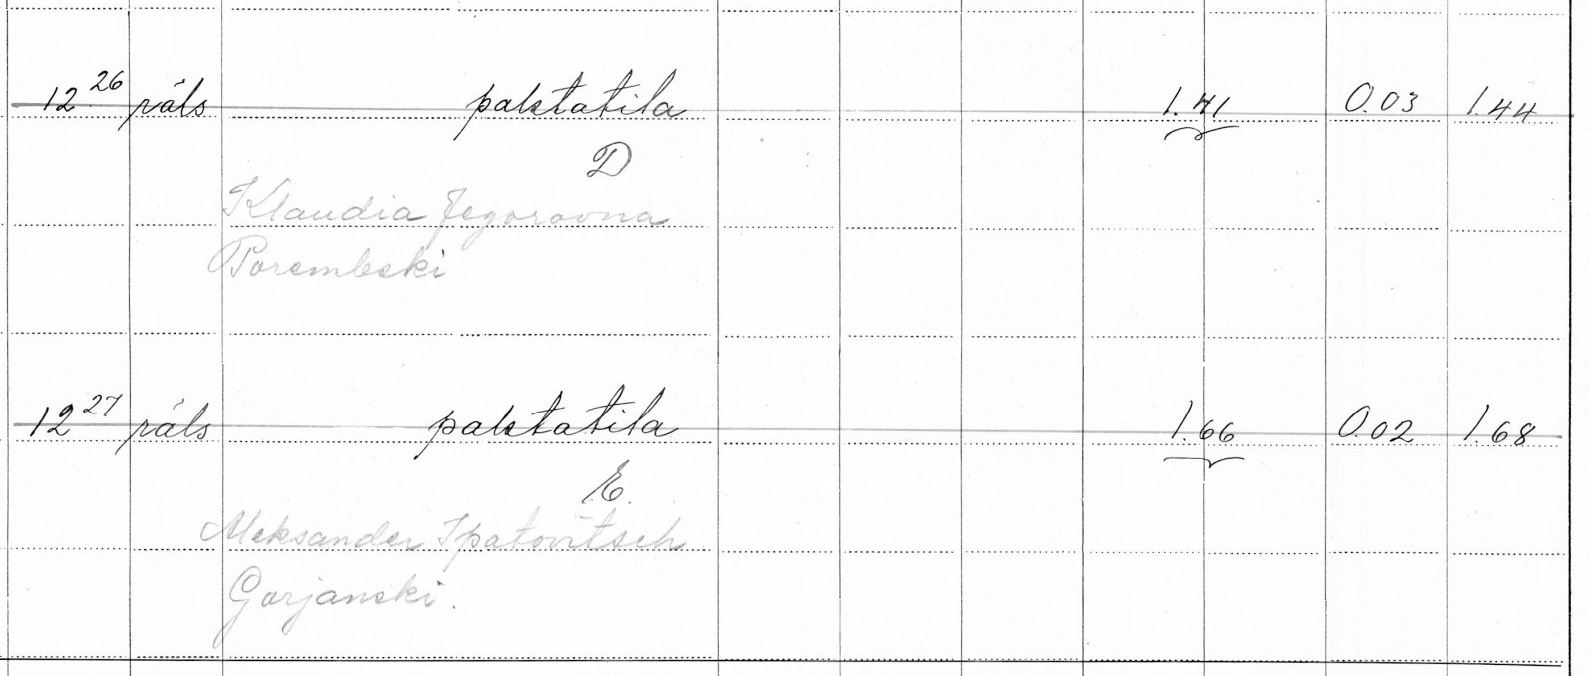 12 26 räls palstatila 1.41 0.03 1.44
D
Klaudia Jegorovna
Porembski
12 27 räls palstatila 1.66 0.02 1.68
E.
Aleksander Ipatovitsch
Gorjanski.